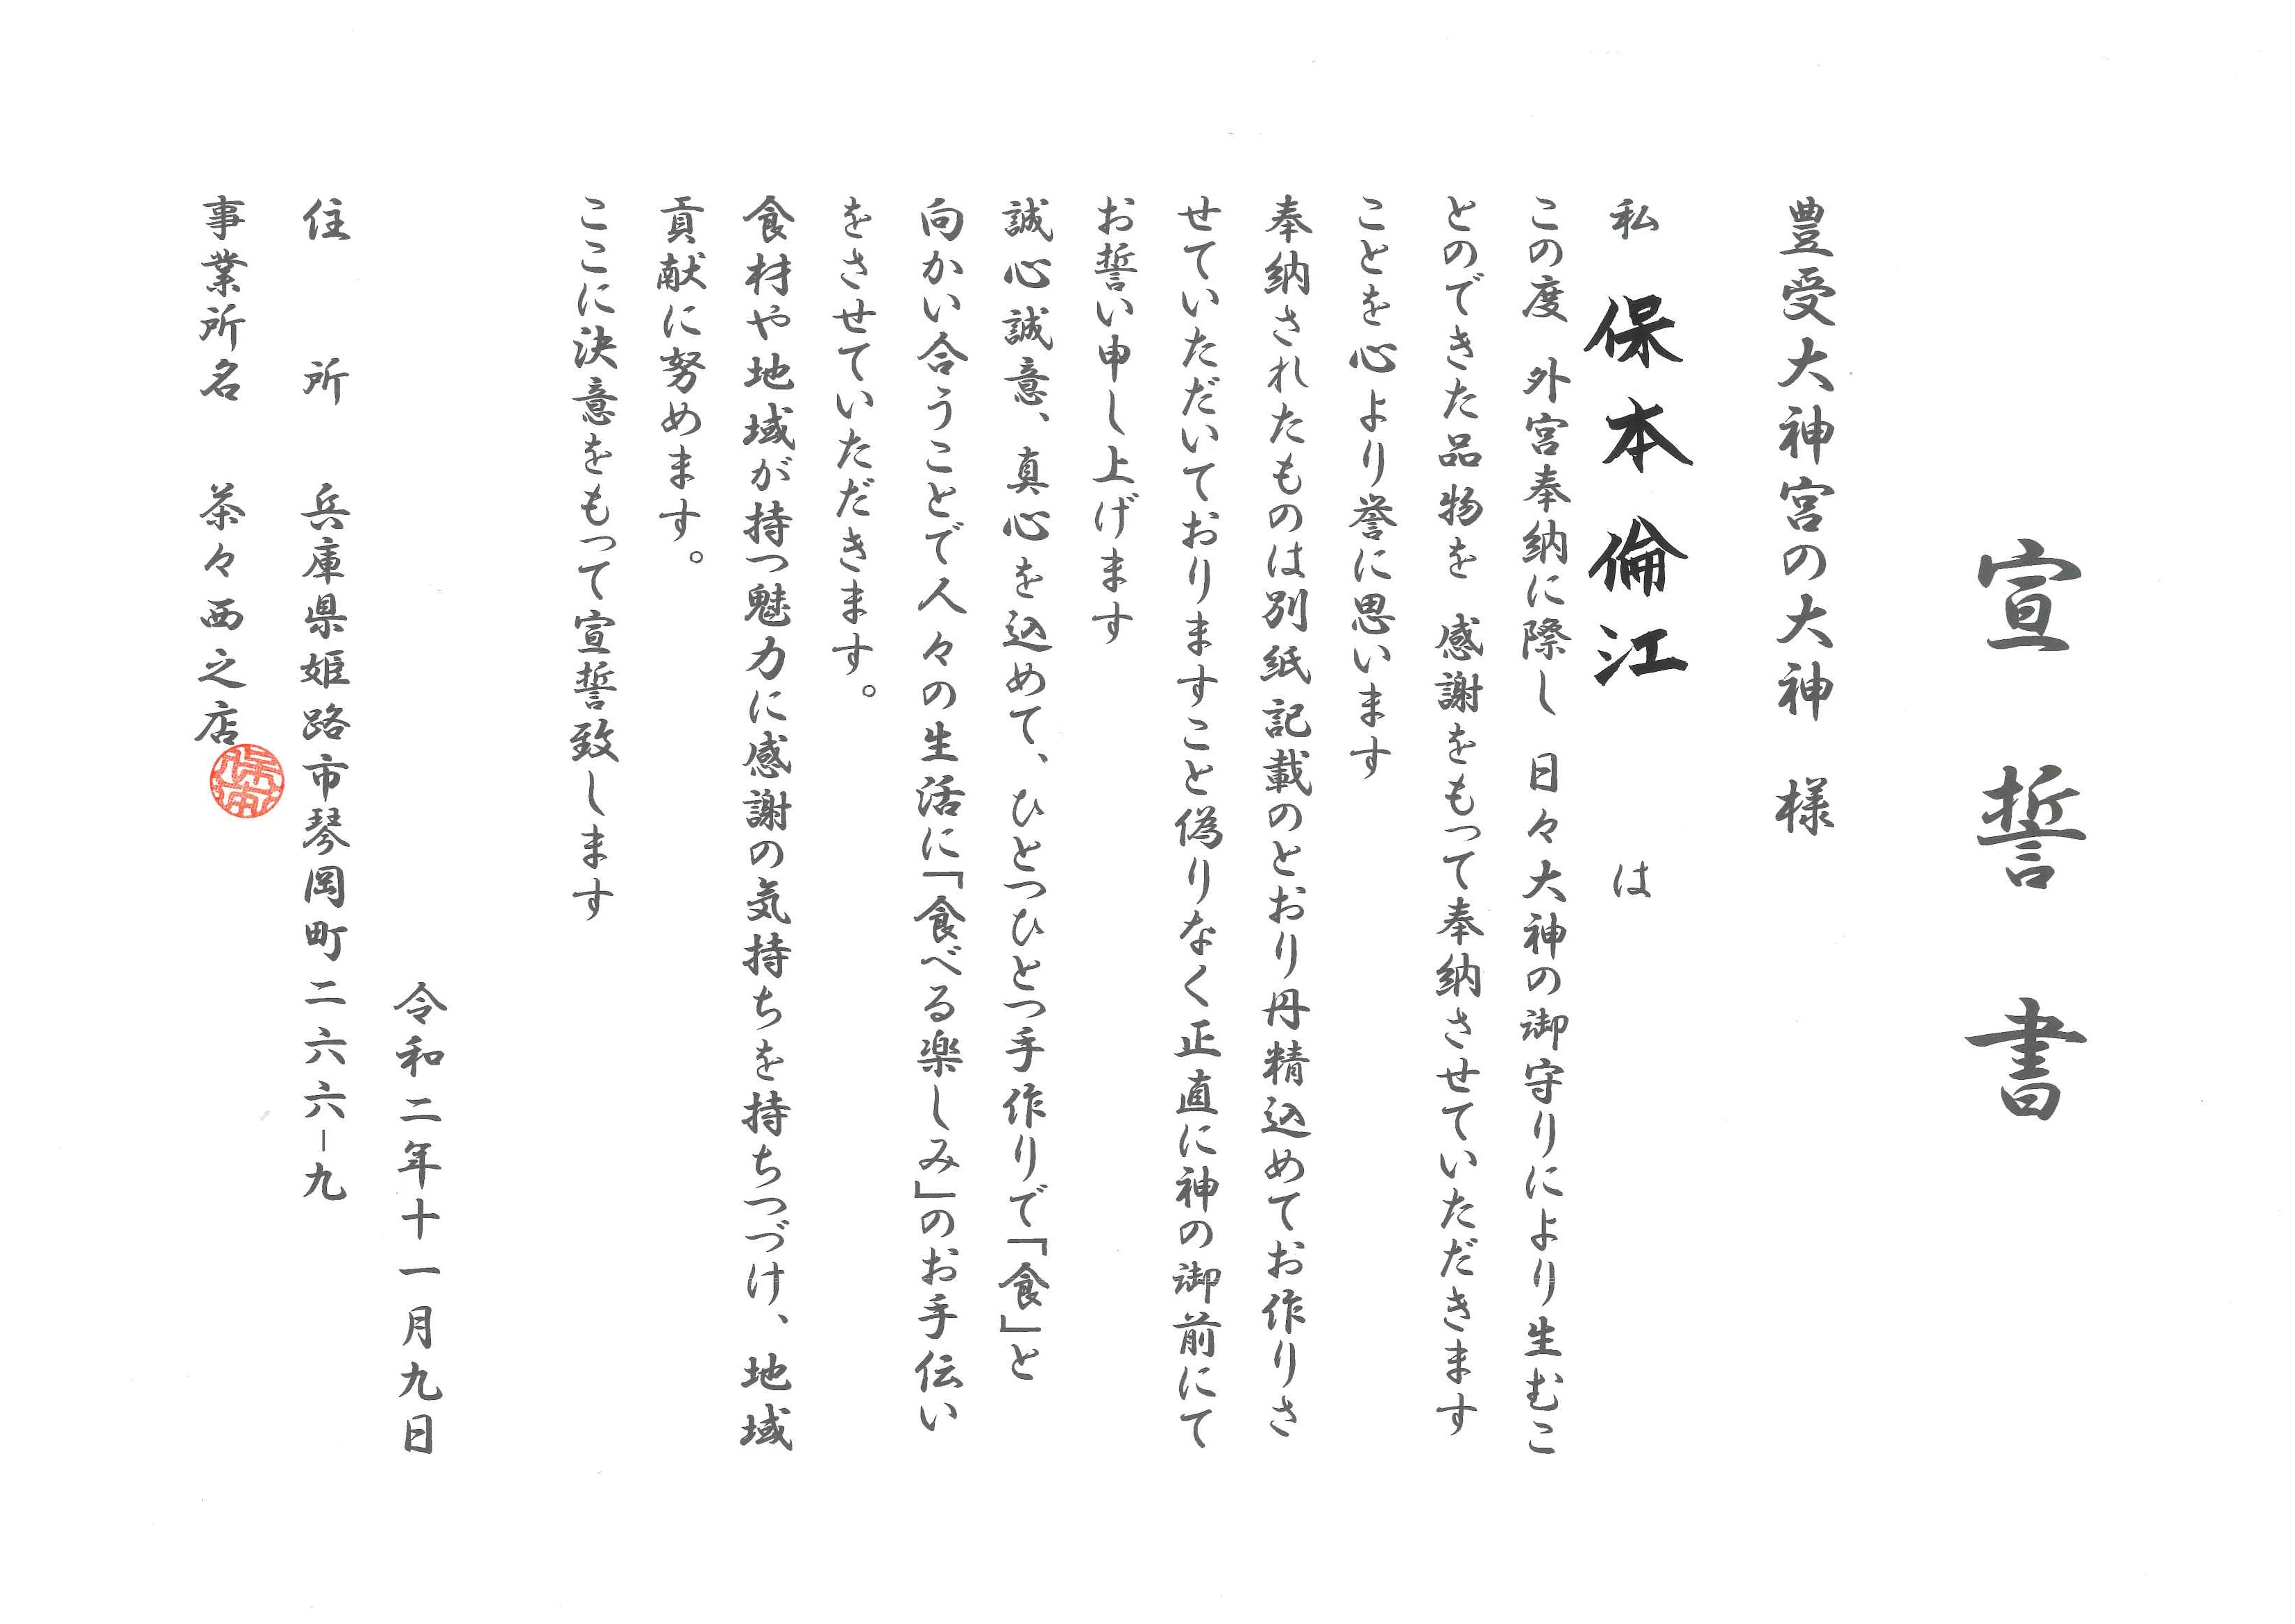 宣誓書
豊受大神宮の大神　様
私　保本倫江　は
この度　外宮奉納に際し　日々大神の御守りにより生むこ
とのできた品物を　感謝をもって奉納させていただきます
ことを心より誉に思います
奉納されたものは別紙記載のとおり丹精込めてお作りさ
せていただいておりますこと偽りなく正直に神の御前にて
お誓い申し上げます
誠心誠意、真心を込めて、ひとつひとつ手作りで「食」と
向かい合うことで人々の生活に「食べる楽しみ」のお手伝い
をさせていただきます。
食材や地域が持つ魅力に感謝の気持ちを持ちつづけ、地域
貢献に努めます。
ここに決意をもって宣誓致します
令和二年十一月九日
住　所　兵庫県姫路市琴岡町二六六－九
事業所名　茶々西之店